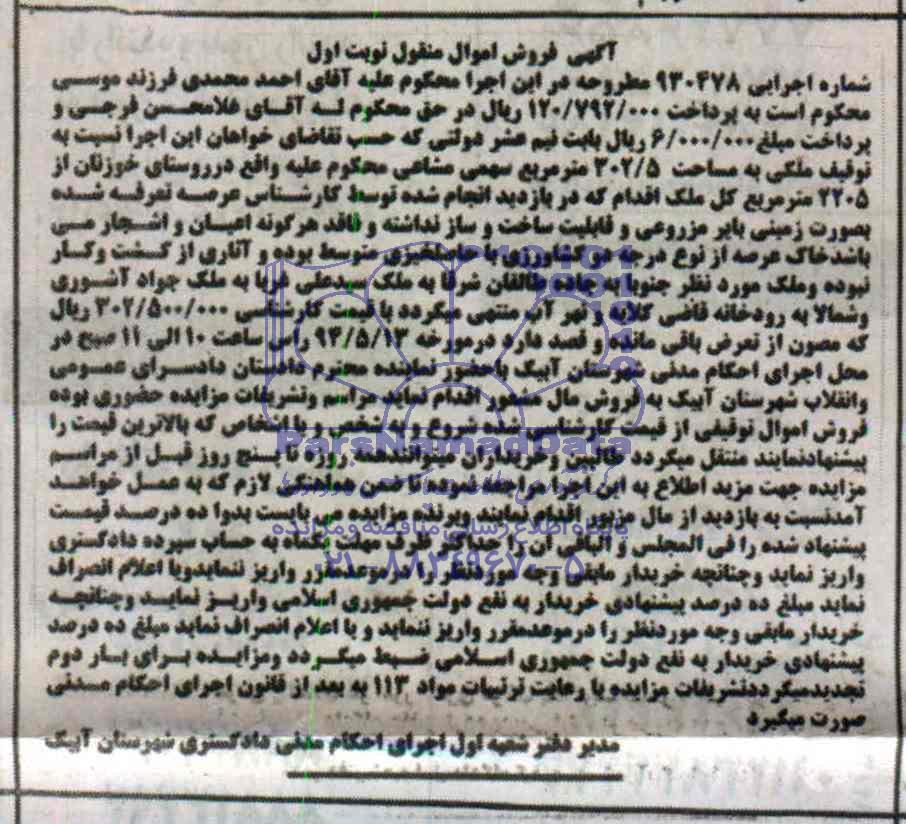 آگهی فروش اموال منقول نوبت اول
شماره اجرایی ۹۳۰۴۷۸ مطروحه در این اجرا محکوم علیه آقای احمد محمدی فرزند موسی
محکوم است به پرداخت ۱۲۰/۷۹۲/۰۰۰ ریال در حق محکوم لـه آقـای غلامحسن فرجی و
پرداخت مبلغ ۶/۰۰۰/۰۰۰ ریال بابت نیم عشر دولتی که حسب تقاضای خواهان این اجرا نسبت به
توقیف ملکی به مساحت ۳۰۲/۵ مترمربع سهمی مشاعی محکوم علیه واقع درروستای خوزنان از
۲۲۰۵ مترمربع کل ملک اقدام که در بازدید انجام شده توسط کارشناس عرصه تعرفه شده
بصورت زمینی بایر مزروعی و قابلیت ساخت و ساز نداشته و فاقد هرگونه اعیان و اشجار می
باشدخاک عرصه از نوع درجه دو کشاورزی با حاصلخیزی متوسط بوده و آثاری از کشت وکار
نبوده وملک مورد نظر جنوبا به جاده طالقان شرقا به ملک سیدعلی غربا به ملک جواد آشوری
وشمالا به رودخانه قاضی کلایه و نهر آب منتهی میگردد با قیمت کارشناسی ۳۰۲/۵۰۰/۰۰۰ ریال
که مصون از تعرض باقی مانده و قصد دارد درمورخه ۹۴/۵/۱۳ راس ساعت ۱۰ الی ۱۱ صبح در
محل اجرای احکام مدنی شهرستان آبیک باحضور نماینده محترم دادستان دادسرای عمومی
وانقلاب شهرستان آبیک به فروش مال مذکور اقدام نماید مراسم وتشریفات مزایده حضوری بوده
فروش اموال توقیفی از قیمت کارشناسی شده شروع و به شخص و یا اشخاص که بالاترین قیمت را
پیشنهادنمایند منتقل میگردد طالبین وخریداران میتوانندهمه روزه تا پنج روز قبل از مراسم
مزایده جهت مزید اطلاع به این اجرا مراجعه نموده تا ضمن هماهنگی لازم که به عمل خواهد
آمدنسبت به بازدید از مال مزبور اقدام نمایند وبرنده مزایده می بایست بدوا ده درصد قیمت
پیشنهاد شده را فی المجلس و الباقی آن را حداکثر ظرف مهلت یکماه به حساب سپرده دادگستری
واریز نماید وچنانچه خریدار مابقی وجه موردنظر را درموعدمقرر واریز ننمایدویا اعلام انصراف
نماید مبلغ ده درصد پیشنهادی خریدار به نفع دولت جمهوری اسلامی واریز نمایـد وچنانچه
خریدار مابقی وجه موردنظر را درموعدمقرر واریز ننماید و یا اعلام انصراف نماید مبلغ ده درصد
پیشنهادی خریدار به نفع دولت جمهوری اسـلامی ضـبط میگـردد ومزایـده بـرای بـار دوم
تجدیدمیگرددتشریفات مزایده با رعایت ترتیبات مواد ۱۱۳ به بعد از قانون اجرای احکام مـدنی
صورت میگیرد
مدیر دفتر شعبه اول اجرای احکام مدنی دادگستری شهرستان آبیک
ParsNamadData
پایگاه اطلاع رسانی مناقصه و مزایده
۰۲۱-۸۸۳۴۹۶۷۰-۵